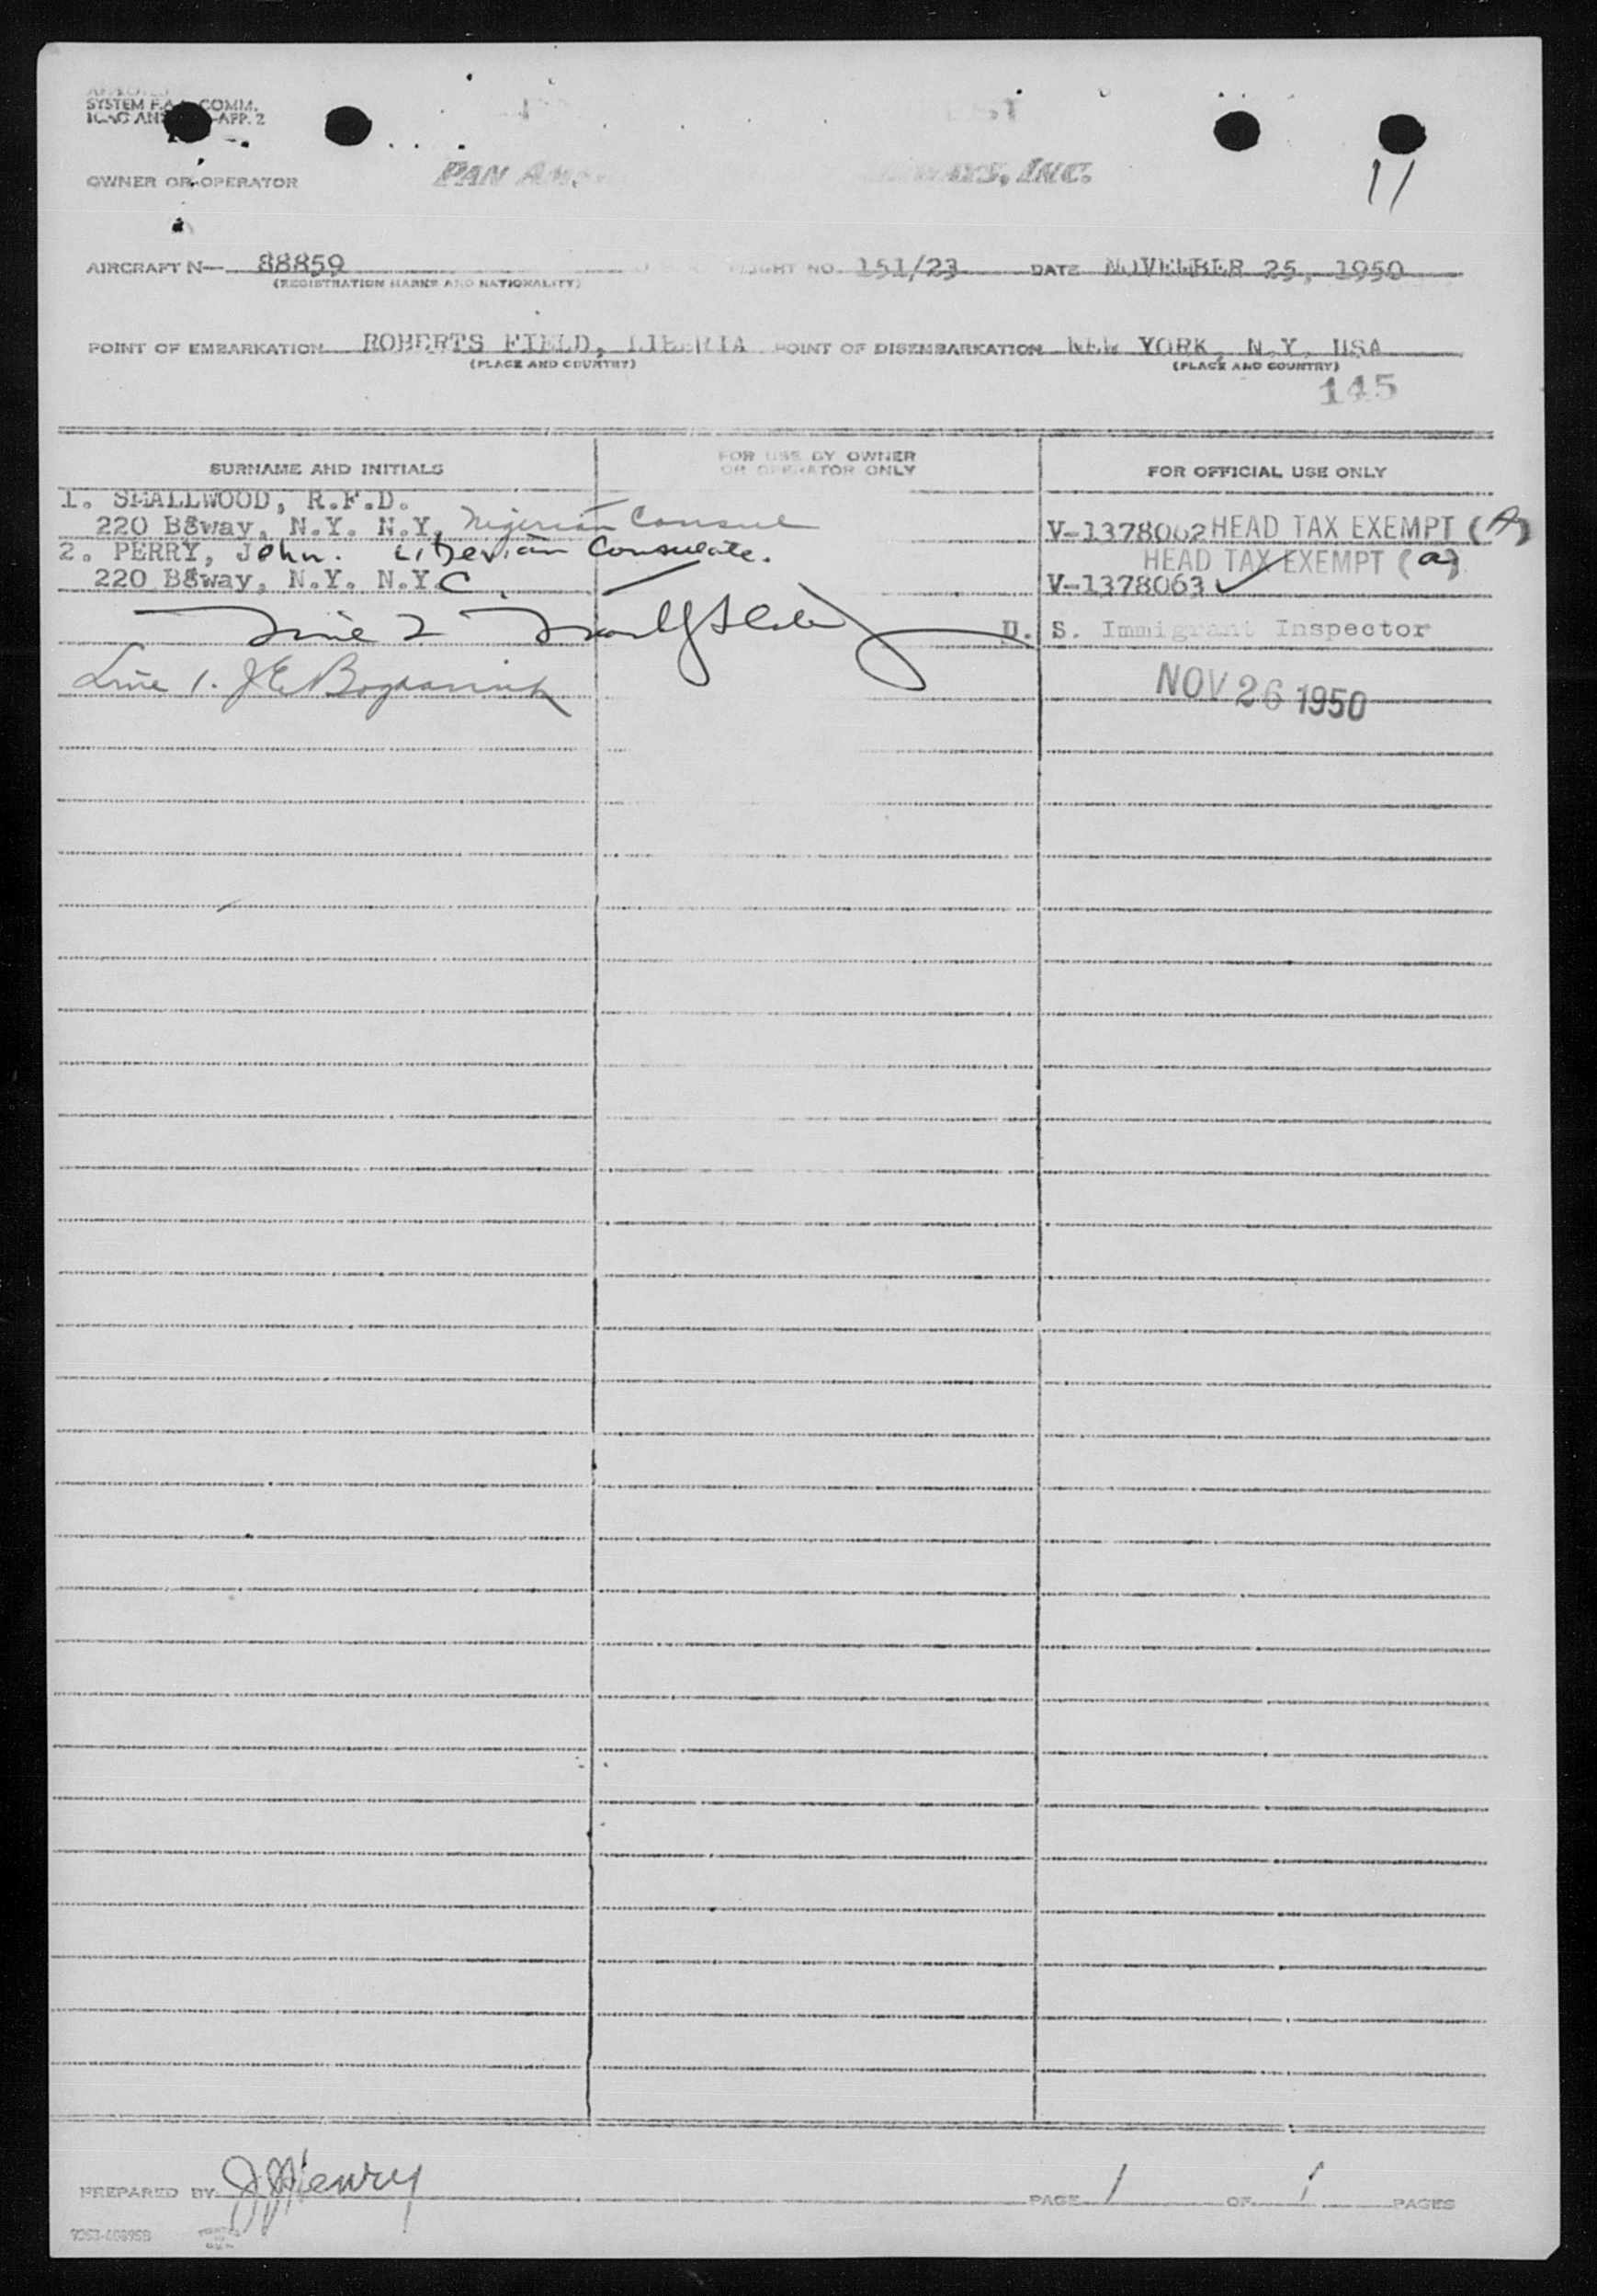 SYSTEM F.A. COMM.
ICAO AN -APP. 2
OWNER OR OPERATOR PAN AM. WAYS, INC.
11
AIRCRAFT N- 88859 FLIGHT NO. 151/23 DATE NOVEMBER 25, 1950
(REGISTRATION MARKS AND NATIONALITY)
POINT OF EMBARKATION ROBERTS FIELD, LIBERIA POINT OF DISEMBARKATION NEW YORK, N.Y. USA
(PLACE AND COUNTRY) (PLACE AND COUNTRY)
145
SURNAME AND INITIALS FOR USE BY OWNER OR OPERATOR ONLY FOR OFFICIAL USE ONLY
1. SMALLWOOD, R.F.D.
220 B8way, N.Y. N.Y. Nigerian Consul V-1378062 HEAD TAX EXEMPT (A)
2. PERRY, John. Liberian Consulate. HEAD TAX EXEMPT (a)
220 B8way, N.Y. N.Y.C. V-1378063 ✓
Line 2 U. S. Immigrant Inspector
Line 1. J E
NOV 26 1950
PREPARED BY J. Henry PAGE 1 OF 1 PAGES